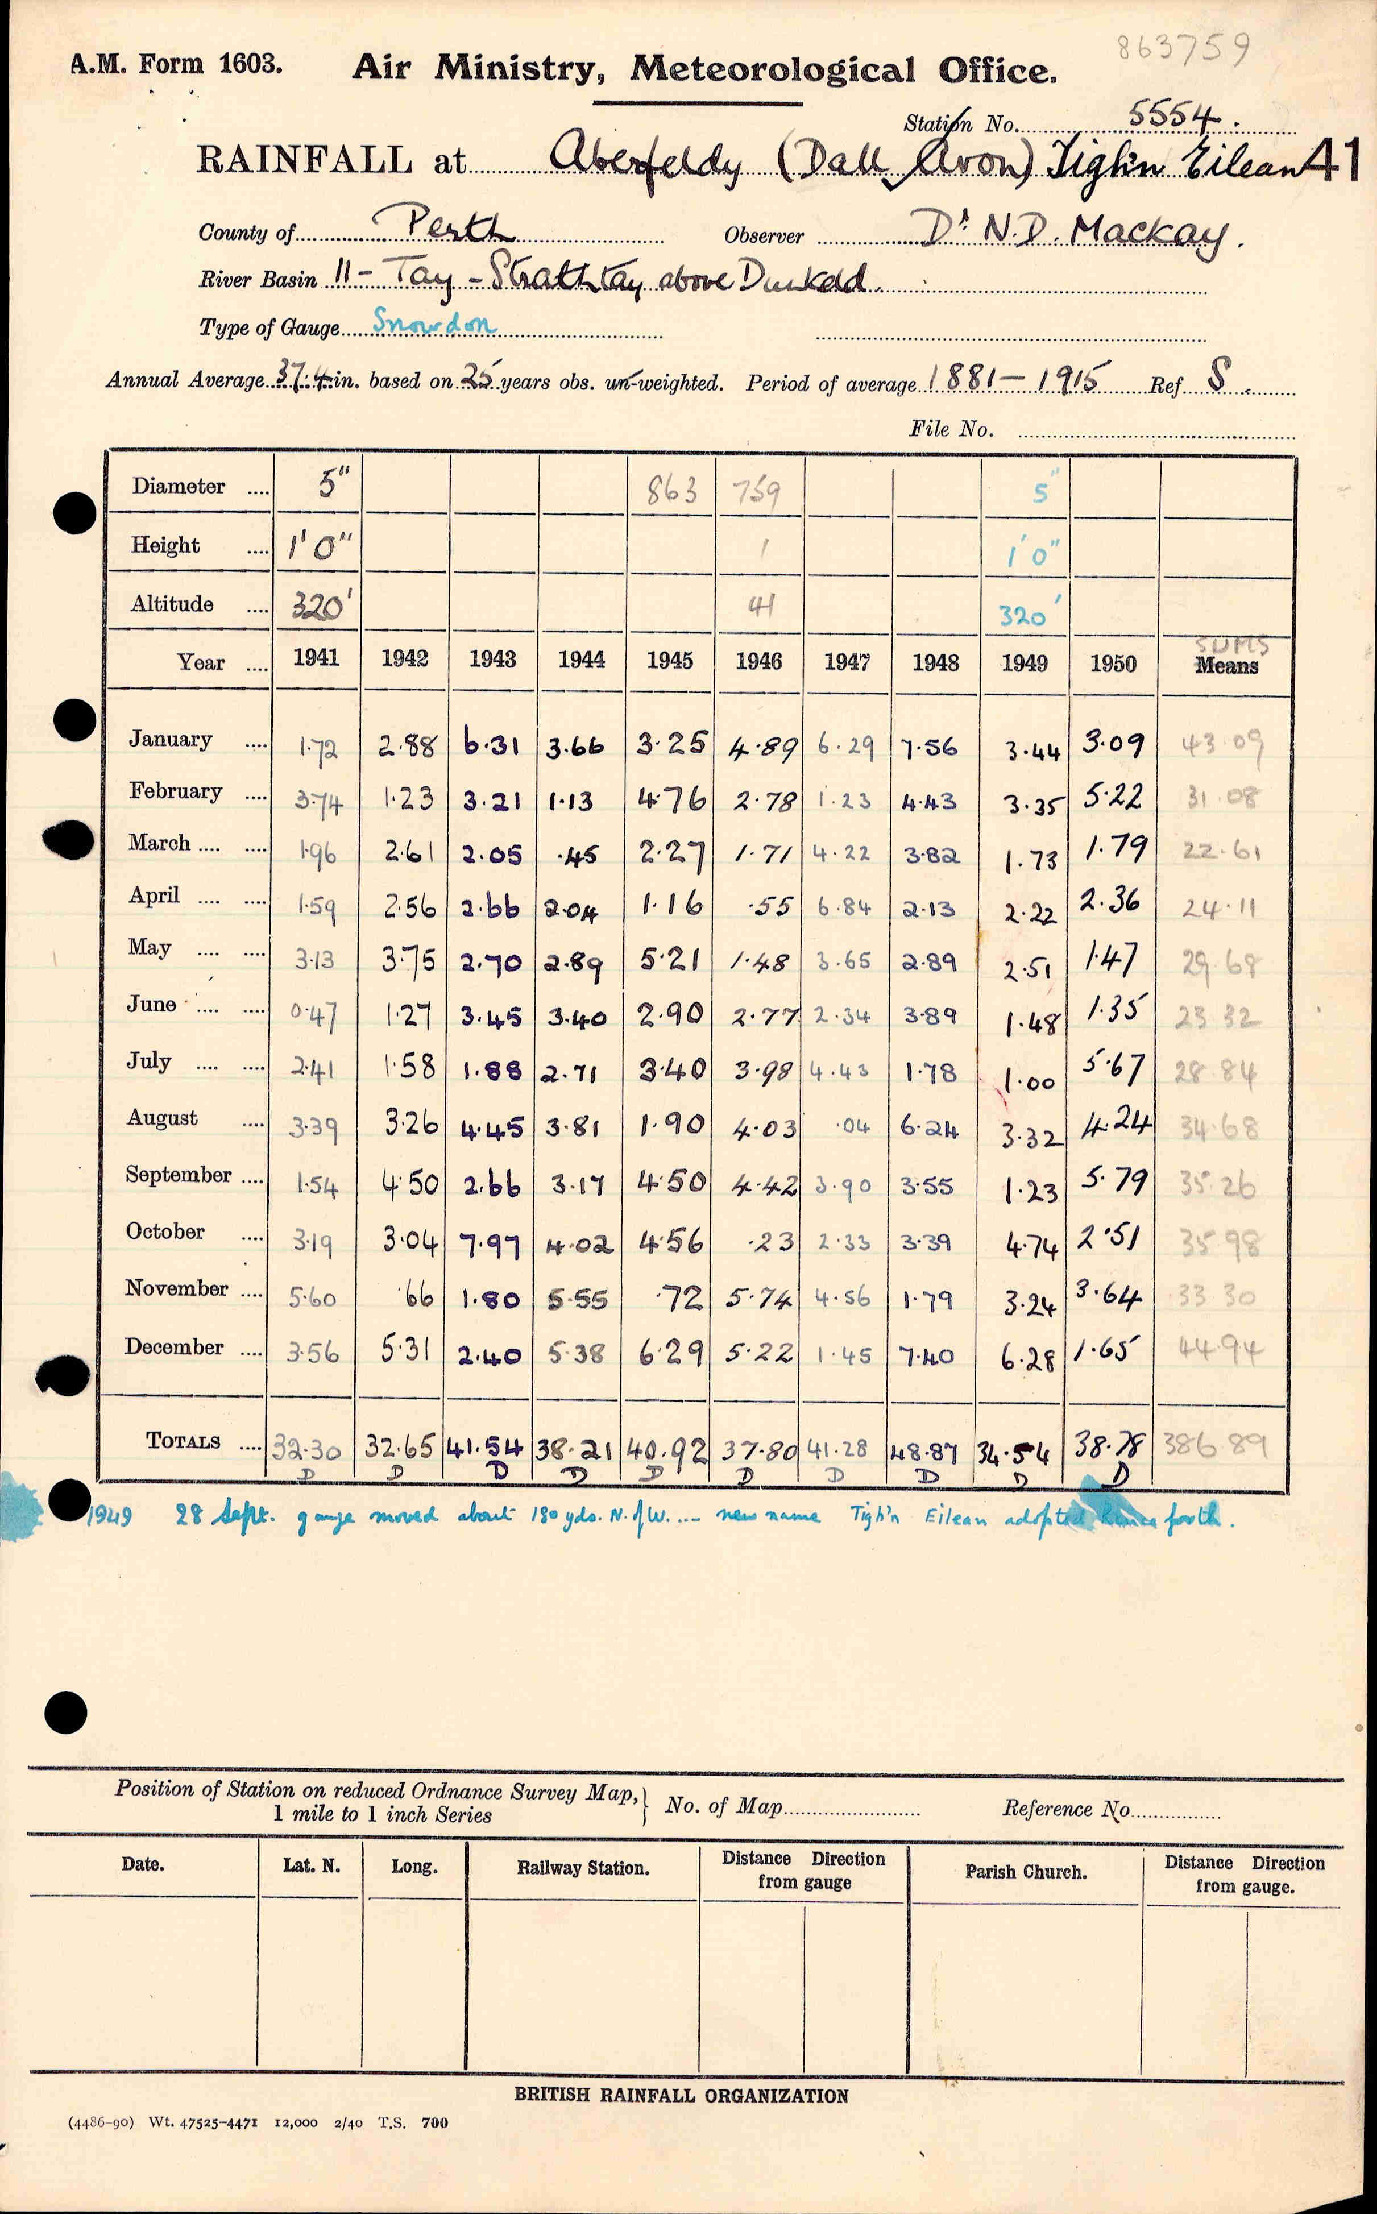 863759
A.M. Form 1603. Air Ministry, Meteorological Office.
Station No. 5554.
RAINFALL at Aberfeldy (Dall Avon) Tigh'n Eilean 41
County of Perth Observer Dr N.D. Mackay.
River Basin 11 - Tay - Strathtay above Dunkeld.
Type of Gauge Snowdon
Annual Average 37.4 in. based on 25 years obs. un-weighted. Period of average 1881 - 1915 Ref S.
File No.
Diameter .... 5" 863 759 5"
Height .... 1' 0" 1 1' 0"
Altitude .... 320' 41 320'
SUMS
Year .... 1941 1942 1943 1944 1945 1946 1947 1948 1949 1950 Means
January .... 1.72 2.88 6.31 3.66 3.25 4.89 6.29 7.56 3.44 3.09 43.09
February .... 3.74 1.23 3.21 1.13 4.76 2.78 1.23 4.43 3.35 5.22 31.08
March .... .... 1.96 2.61 2.05 .45 2.27 1.71 4.22 3.82 1.73 1.79 22.61
April .... .... 1.59 2.56 2.66 2.04 1.16 .55 6.84 2.13 2.22 2.36 24.11
May .... .... 3.13 3.75 2.70 2.89 5.21 1.48 3.65 2.89 2.51 1.47 29.68
June .... .... 0.47 1.27 3.45 3.40 2.90 2.77 2.34 3.89 1.48 1.35 23.32
July .... .... 2.41 1.58 1.88 2.71 3.40 3.98 4.43 1.78 1.00 5.67 28.84
August .... 3.39 3.26 4.45 3.81 1.90 4.03 .04 6.24 3.32 4.24 34.68
September .... 1.54 4.50 2.66 3.17 4.50 4.42 3.90 3.55 1.23 5.79 35.26
October .... 3.19 3.04 7.97 4.02 4.56 .23 2.33 3.39 4.74 2.51 35.98
November .... 5.60 .66 1.80 5.55 .72 5.74 4.56 1.79 3.24 3.64 33.30
December .... 3.56 5.31 2.40 5.38 6.29 5.22 1.45 7.40 6.28 1.65 44.94
TOTALS .... 32.30 32.65 41.54 38.21 40.92 37.80 41.28 48.87 34.54 38.78 386.89
D D D D D D D D D D
1949 28 Sept. gauge moved about 180 yds. N. of W. .... new name Tigh'n Eilean adopted hence forth.
Position of Station on reduced Ordnance Survey Map, 1 mile to 1 inch Series } No. of Map Reference No.
Date. Lat. N. Long. Railway Station. Distance Direction from gauge Parish Church. Distance Direction from gauge.
BRITISH RAINFALL ORGANIZATION
(4486-90) Wt. 47525-4471 12,000 2/40 T.S. 700